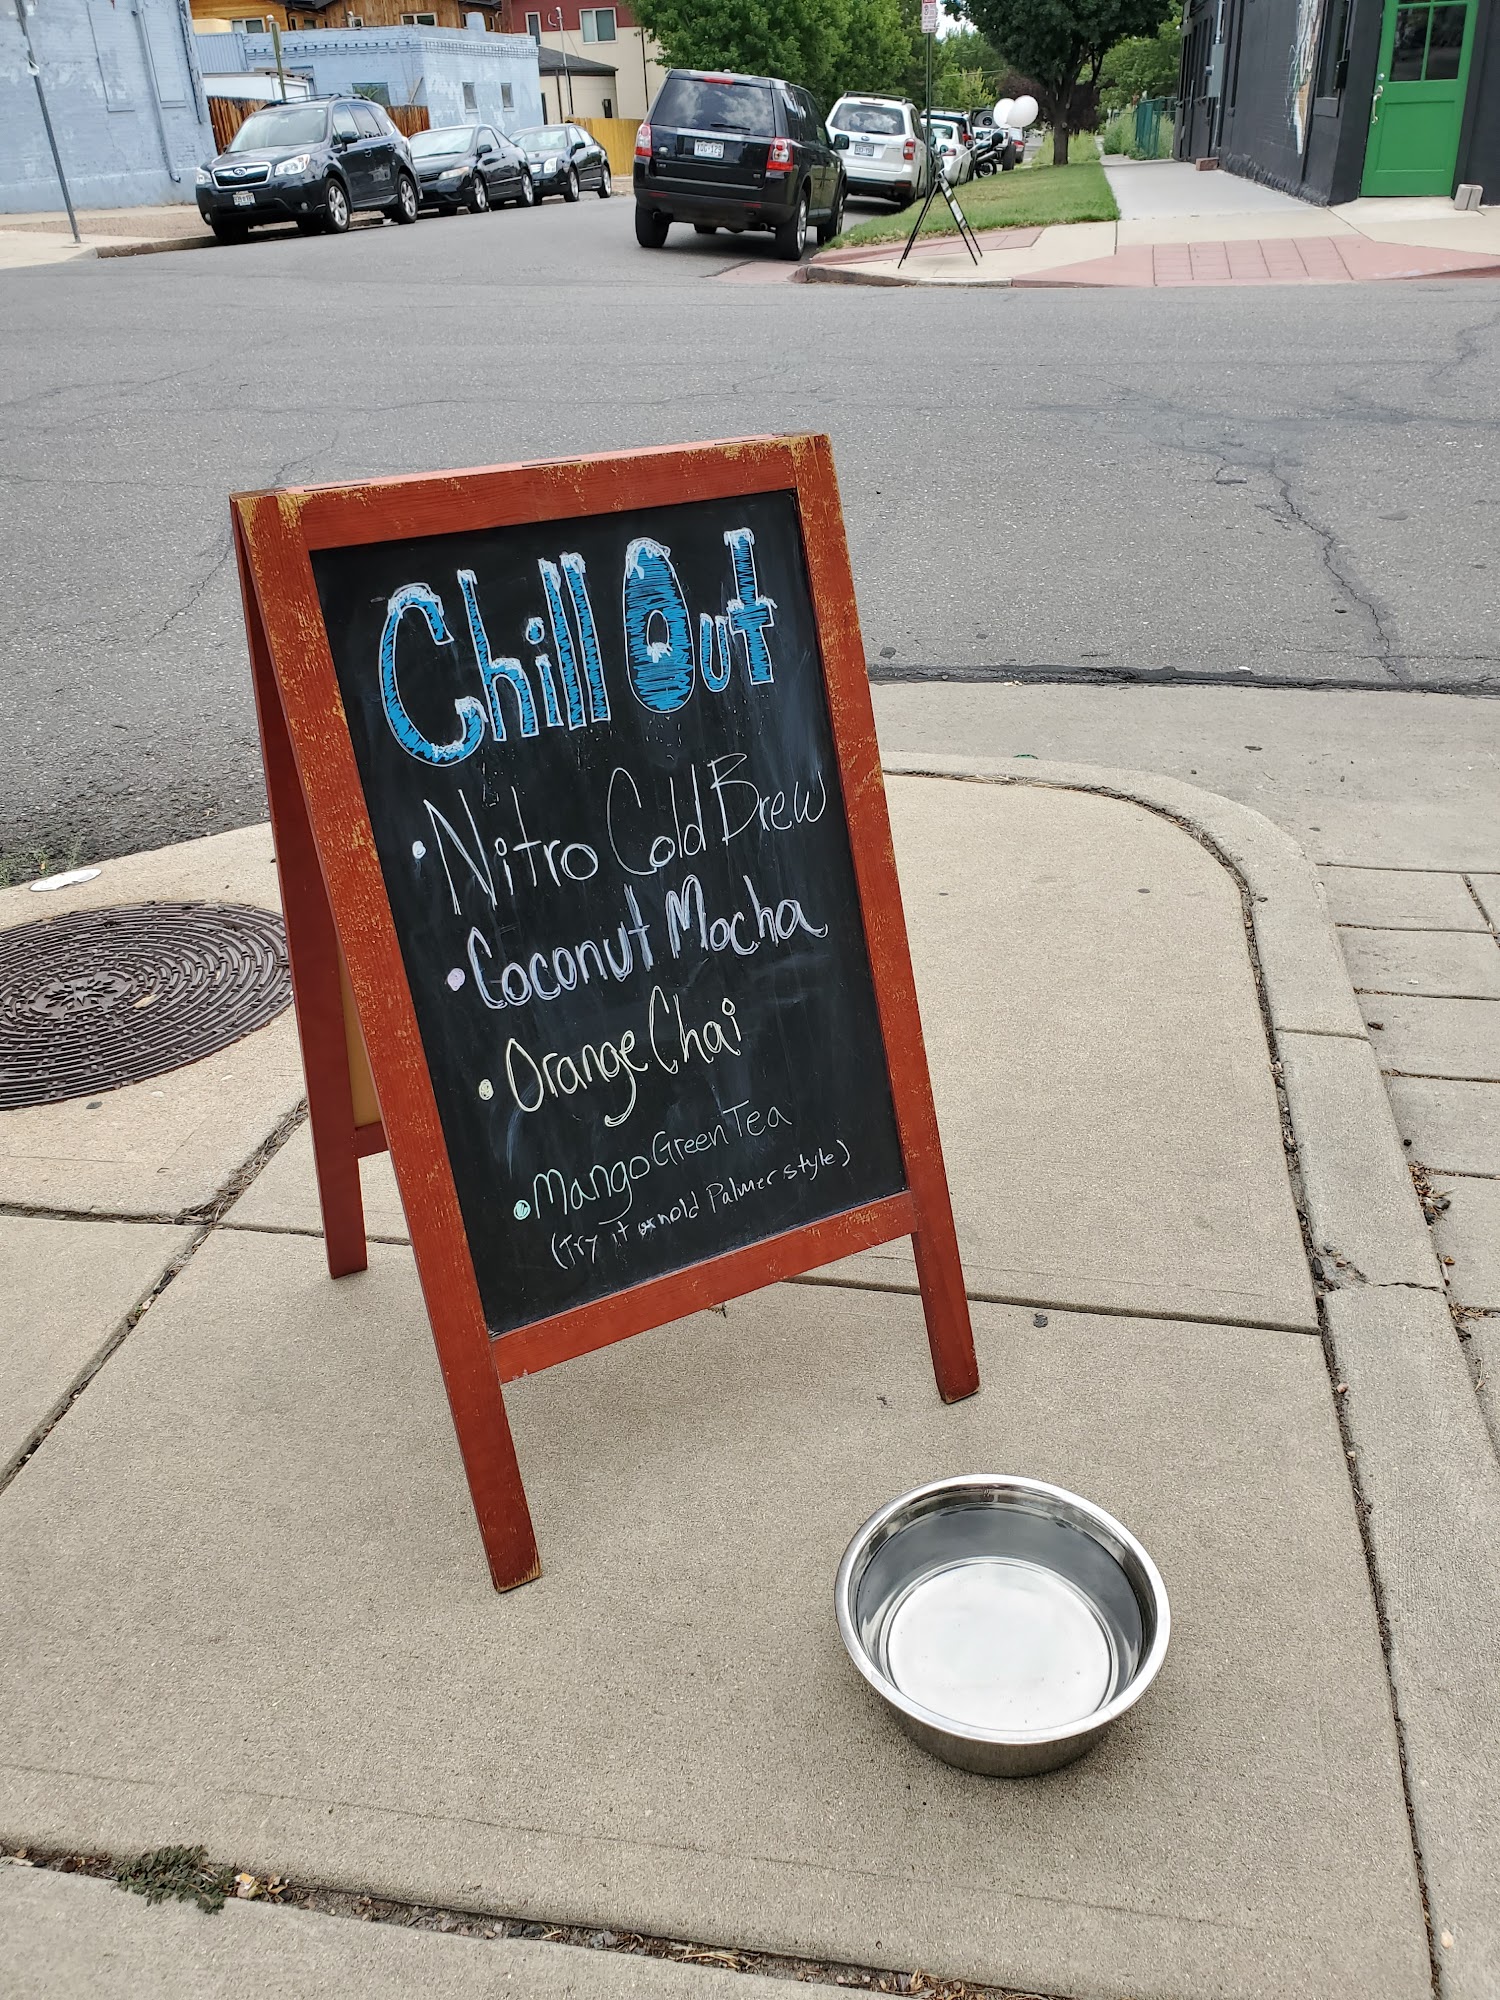 Chill Out
• Nitro Cold Brew
• Coconut Mocha
• Orange Chai
• Mango Green Tea
(Try it arnold Palmer style)